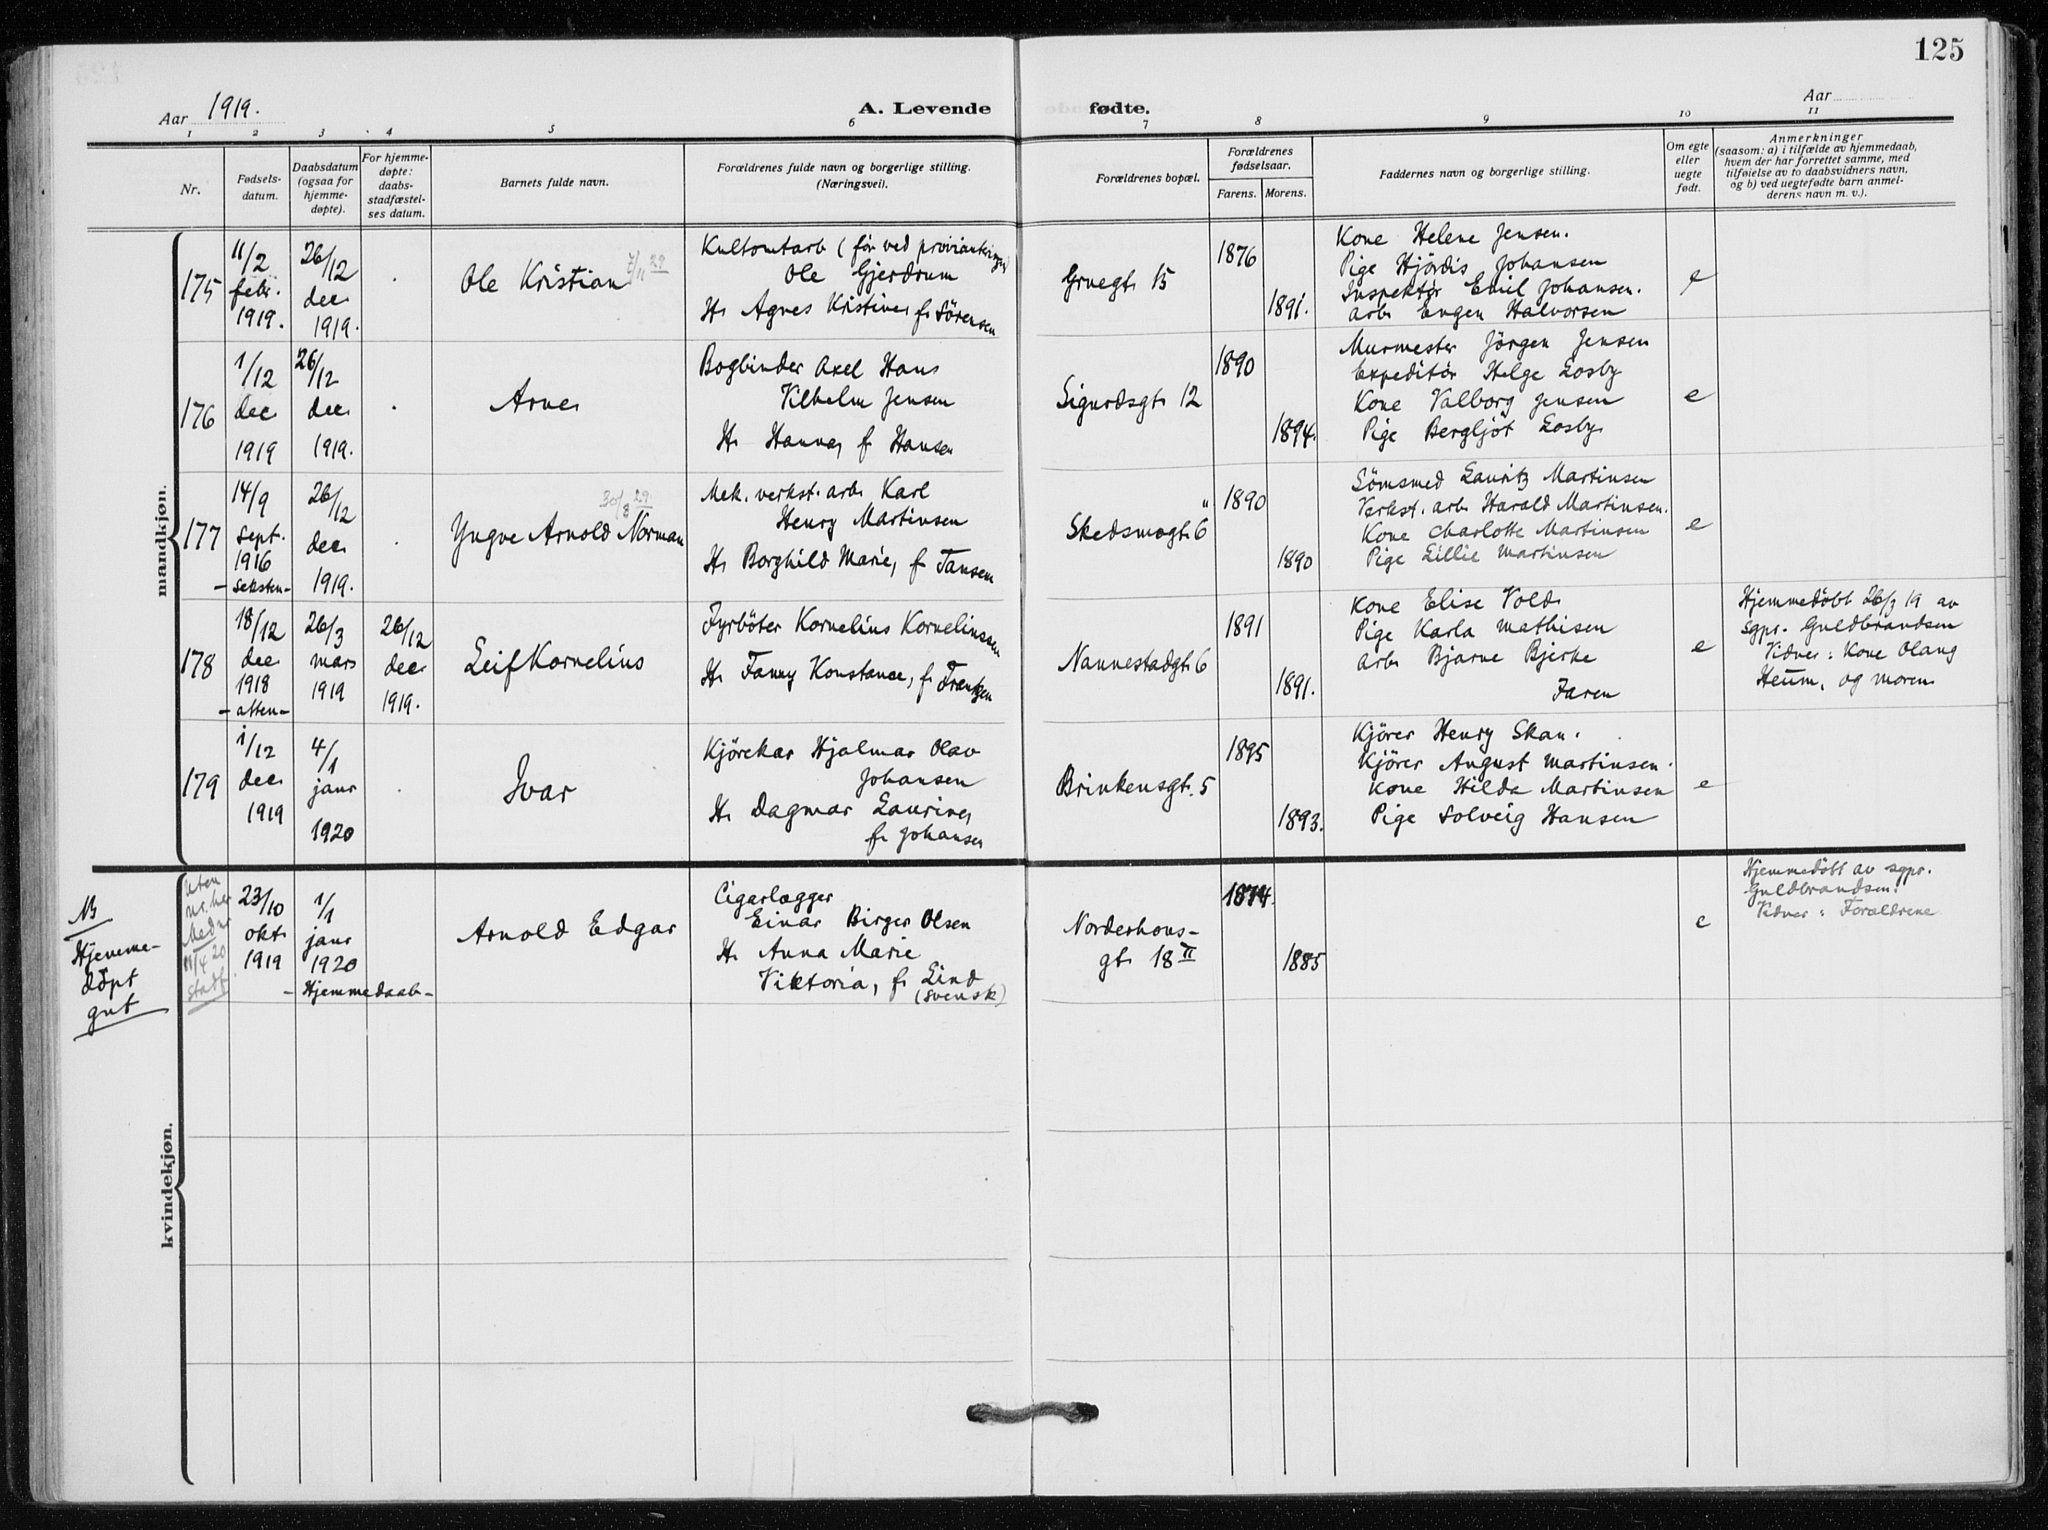 125
Aar 1919.
A. Levende fødte.
Aar
1 2 3 4 5 6 7 8 9 10 11
Nr.
Fødsels-
datum.
Daabsdatum
(ogsaa for
hjemme-
døpte).
For hjemme-
døpte:
daabs-
stadfæstel-
ses datum.
Barnets fulde navn.
Forældrenes fulde navn og borgerlige stilling.
(Næringsvei).
Forældrenes bopæl.
Forældrenes
fødselsaar.
Farens. Morens.
Faddernes navn og borgerlige stilling.
Om egte
eller
uegte
født.
Anmerkninger
(saasom: a) i tilfælde av hjemmedaab,
hvem der har forrettet samme, med
tilføielse av to daabsvidners navn,
og b) ved uegtefødte barn anmel-
derens navn m. v.).
mandkjøn.
175
11/2
febr.
1919.
26/12
dec
1919.
Ole Kristian
7/11 29
Kultomtarb (før ved provianteringen)
Ole Gjerdrum
H. Agnes Kristine f. Sörensen
Gruegt. 15
1876
1891.
Kone Helene Jensen.
Pige Hjördis Johansen
Inspektör Emil Johansen.
arb. Eugen Halvorsen
e
176
1/12
dec
1919
26/12
dec
1919.
Arne
Bogbinder Axel Hans
Vilhelm Jensen
H. Hanna, f. Hansen
Sigurdsgt. 12
1890
1894.
Murmester Jörgen Jensen
Expeditör Helge Losby
Kone Valborg Jensen
Pige Bergljot Losby
e
177
14/9
Sept.
1916
- seksten -
26/12
dec
1919.
Yngve Arnold Norman
30/8 29.
Mek. verkst. arb. Karl
Henry Martinsen
H. Borghild Marie, f. Jansen
Skedsmogt. 6
1890
1890
Sömsmed Lauritz Martinsen
Verkst. arb. Harald Martinsen.
Kone Charlotte Martinsen
Pige Lillie Martinsen
e
178
18/12
dec
1918
- atten -
26/3
mars
1919
26/12
dec
1919.
Leif Kornelius
Fyrböter Kornelius Korneliussen
H. Fanny Konstance, f. Frantzen
Nannestadgt. 6
1891
1891.
Kone Elise Vold
Pige Karla Mathisen
arb. Bjarne Bjerke
Faren
e
Hjemmedöbt 26/3 19 av
sgpr. Guldbrandsen
Vidner: Kone Olang
Heum, og moren
179
1/12
dec
1919
4/1
janr
1920
Ivar
Kjörekar Hjalmar Olav
Johansen
H. Dagmar Laurine,
f. Johansen
Brinkensgt. 5
1895
1893.
Kjörer Henry Skau.
Kjörer August Martinsen.
Kone Hilda Martinsen
Pige Solveig Hansen
e
kvindekjøn.
NB
Hjemme-
döpt
gut
Uten
nr. her
Med nr
11/4 20
stadf.
23/10
okt
1919
1/1
janr
1920
- Hjemmedaab -
Arnold Edgar
Cigarlægger
Einar Birger Olsen
H. Anna Marie
Viktoria, f. Lind
(svensk)
Norderhous-
gt. 18 II
1874.
1885
e
Hjemmedöbt av sgpr.
Guldbrandsen.
Vidner: Forældrene